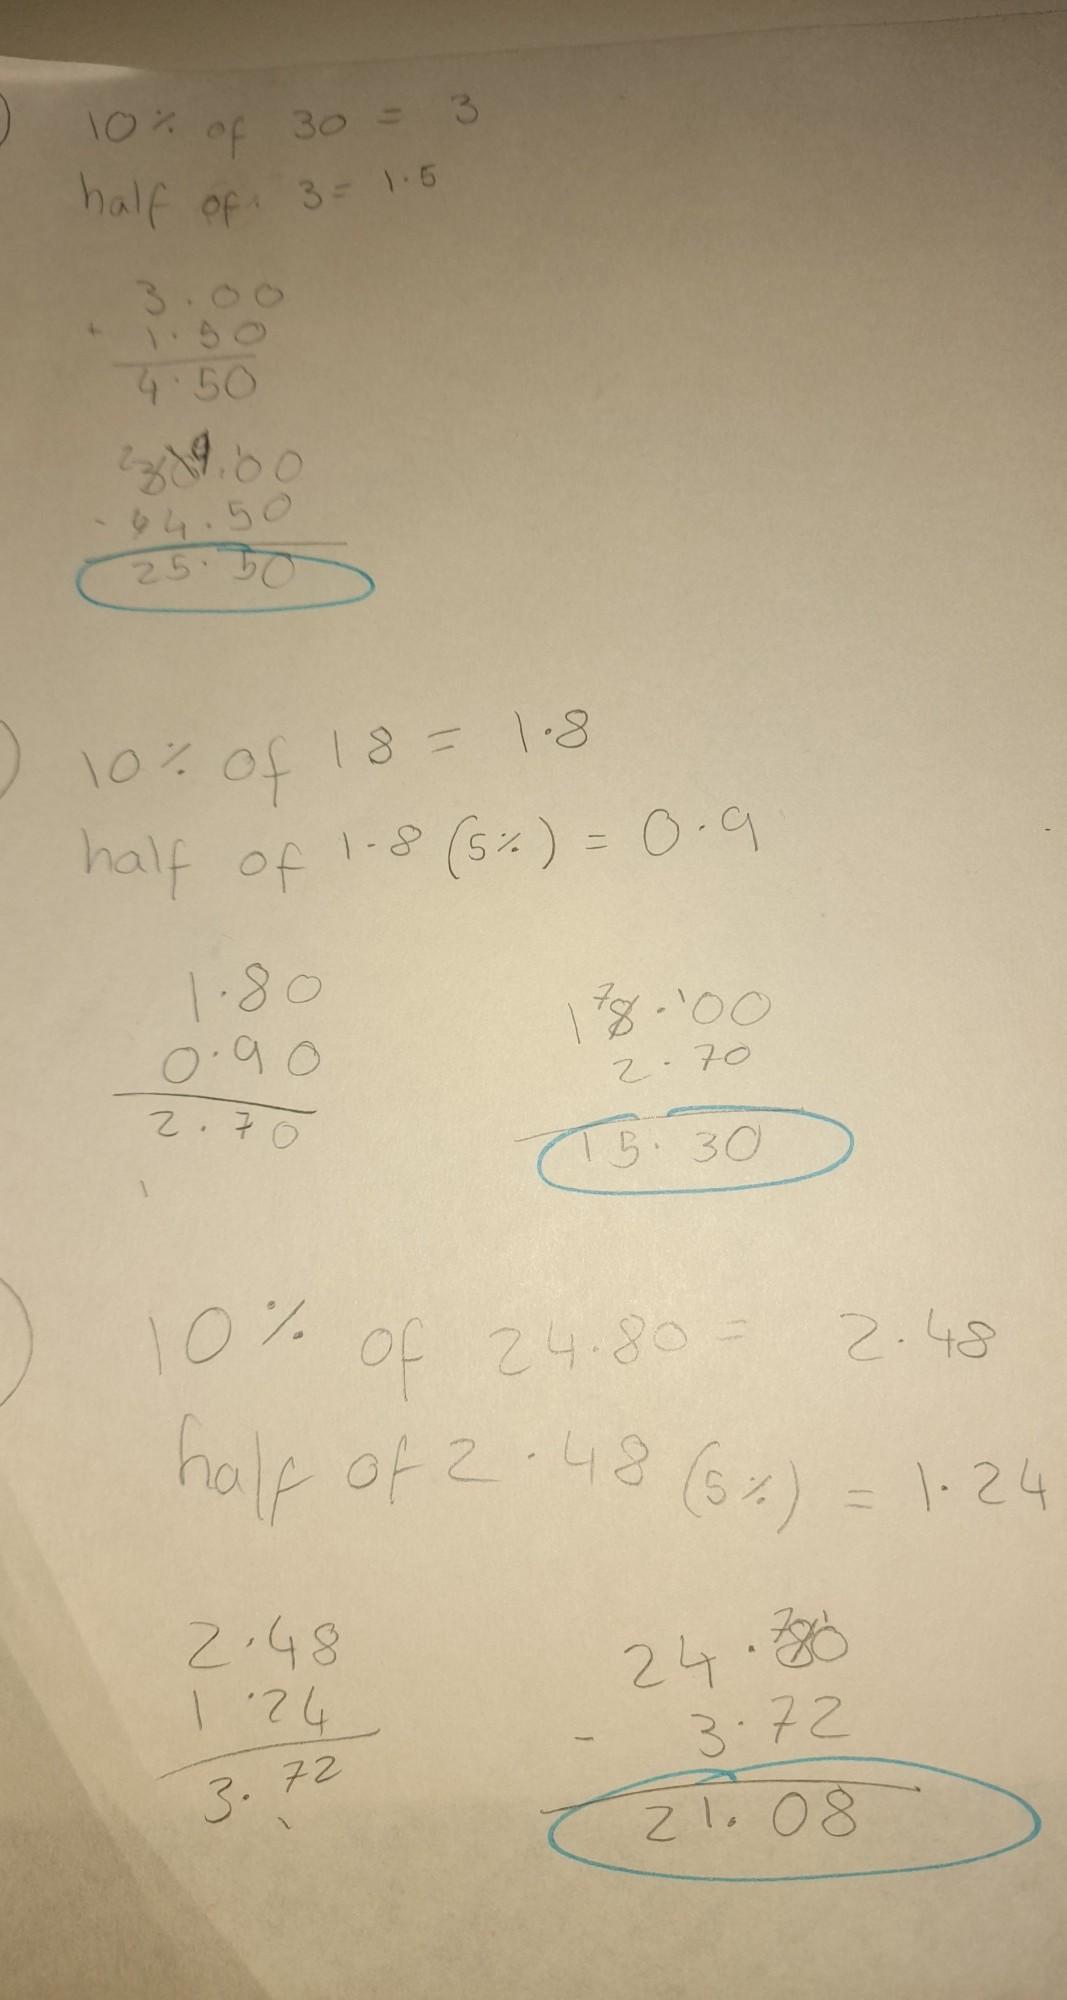 )
10% of 30 = 3
half of 3 = 1.5
3.00
+ 1.50
4.50
2 9 1
30.00
- 4.50
25.50
)
10% of 18 = 1.8
half of 1.8 (5%) = 0.9
1.80
0.90
2.70
1
7 1
18.00
2.70
15.30
)
10% of 24.80 = 2.48
half of 2.48 (5%) = 1.24
2.48
1.24
3.72
1
7 1
24.80
- 3.72
21.08